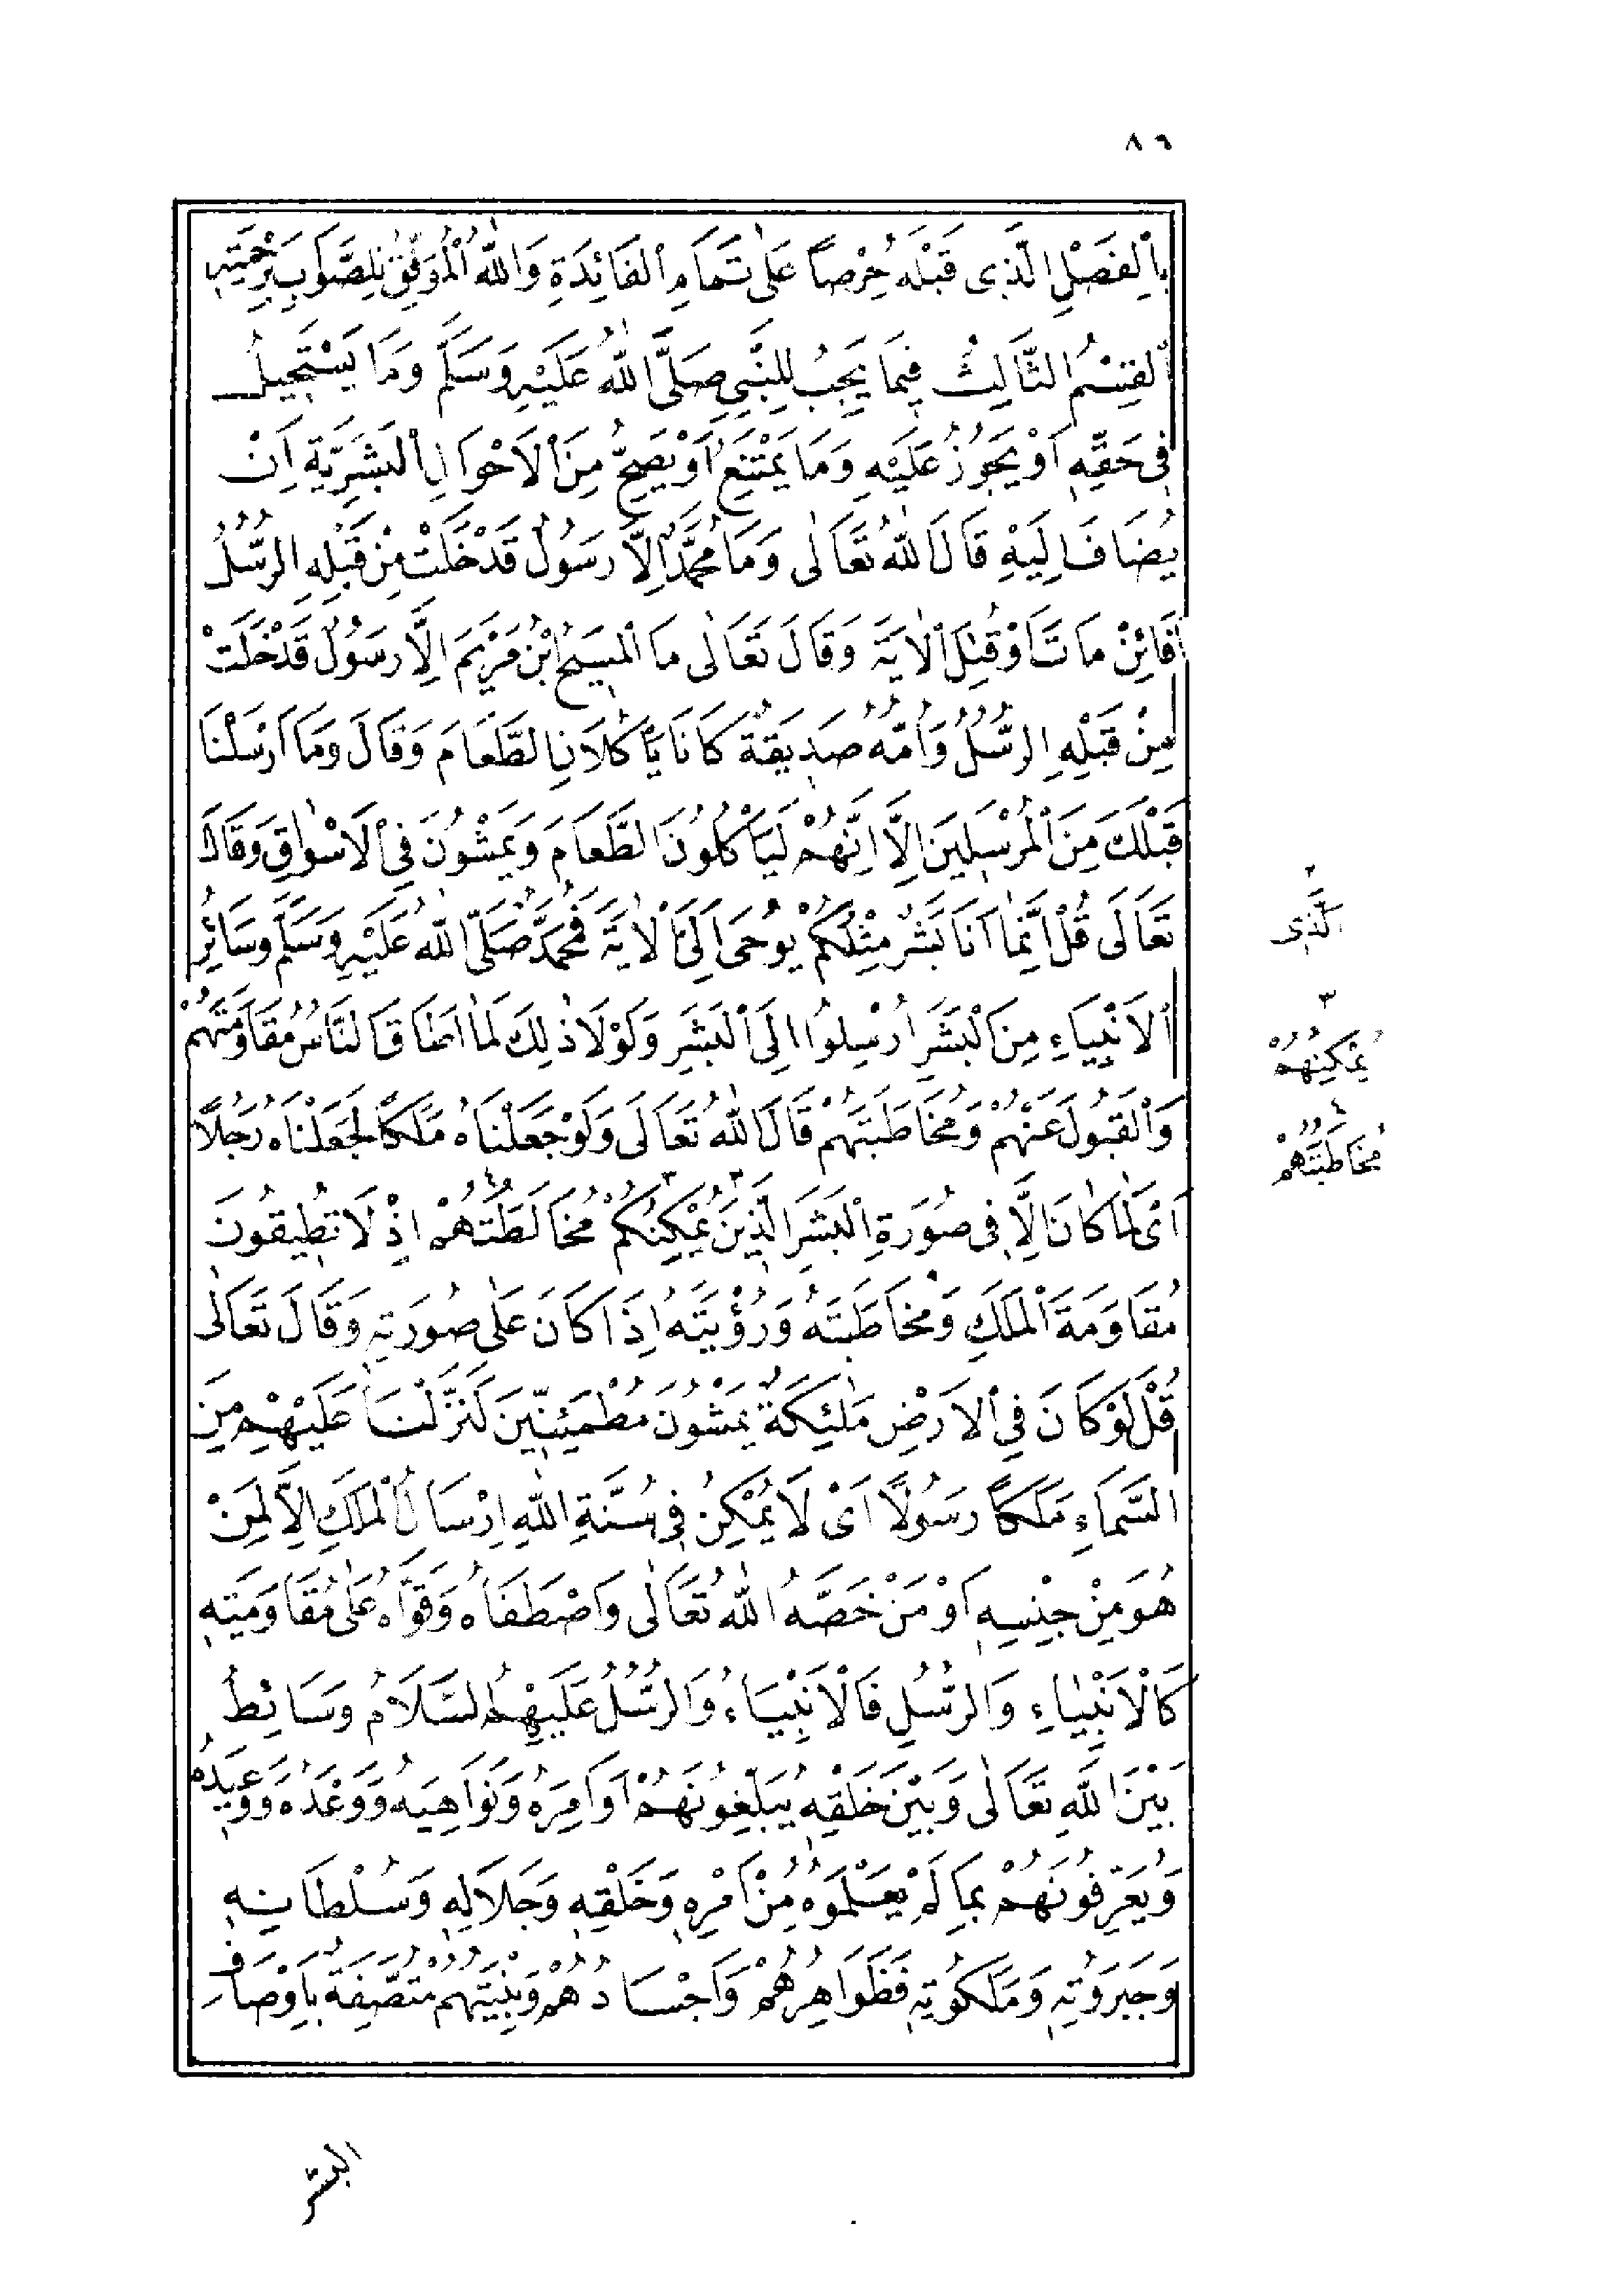 ٨٦
بِالْفَصْلِ الَّذِى قَبْلَهُ حِرْصاً عَلَى تَمَامِ الْفَائِدَةِ وَاللّٰهُ الْمُوَفِّقُ لِلصَّوَابِ بِرَحْمَتِهِ
اَلْقِسْمُ الثَّالِثُ فِيمَا يَجِبُ لِلنَّبِىِّ صَلَّى اللّٰهُ عَلَيْهِ وَسَلَّمَ وَمَا يَسْتَحِيلُ
فِى حَقِّهِ اَوْ يَجُوزُ عَلَيْهِ وَمَا يَمْتَنِعُ اَوْ يَصِحُّ مِنَ الْاَحْوَالِ الْبَشَرِيَّةِ اَنْ
يُضَافَ اِلَيْهِ قَالَ اللّٰهُ تَعَالٰى وَمَا مُحَمَّدٌ اِلَّا رَسُولٌ قَدْ خَلَتْ مِنْ قَبْلِهِ الرُّسُلُ
اَفَائِنْ مَاتَ اَوْ قُتِلَ الْاٰيَةَ وَقَالَ تَعَالٰى مَا الْمَسِيحُ ابْنُ مَرْيَمَ اِلَّا رَسُولٌ قَدْ خَلَتْ
مِنْ قَبْلِهِ الرُّسُلُ وَاُمُّهُ صِدِّيقَةٌ كَانَا يَأْكُلَانِ الطَّعَامَ وَقَالَ وَمَا اَرْسَلْنَا
قَبْلَكَ مِنَ الْمُرْسَلِينَ اِلَّا اِنَّهُمْ لَيَأْكُلُونَ الطَّعَامَ وَيَمْشُونَ فِى الْاَسْوَاقِ وَقَالَ
تَعَالَى قُلْ اِنَّمَا اَنَا بَشَرٌ مِثْلُكُمْ يُوحَى اِلَىَّ الْاٰيَةَ فَمُحَمَّدٌ صَلَّى اللّٰهُ عَلَيْهِ وَسَلَّمَ وَسَائِرُ
اَلْاَنْبِيَاءِ مِنَ الْبَشَرِ اُرْسِلُوا اِلَى الْبَشَرِ وَلَوْلَا ذٰلِكَ لَمَا اَطَاقَ النَّاسُ مُقَاوَمَتَهُمْ
وَالْقَبُولَ عَنْهُمْ وَمُخَاطَبَتَهُمْ قَالَ اللّٰهُ تَعَالَى وَلَوْ جَعَلْنَاهُ مَلَكاً لَجَعَلْنَاهُ رَجُلًا
اَىْ لَمَا كَانَ اِلَّا فِى صُورَةِ الْبَشَرِ الَّذِينَ ٢ يُمْكِنُكُمْ ٣ مُخَالَطَتُهُمْ ٤ اِذْ لَا تُطِيقُونَ
مُقَاوَمَةَ الْمَلَكِ وَمُخَاطَبَتَهُ وَرُؤْيَتَهُ اِذَا كَانَ عَلٰى صُورَتِهِ وَقَالَ تَعَالٰى
قُلْ لَوْ كَانَ فِى الْاَرْضِ مَلٰئِكَةٌ يَمْشُونَ مُطْمَئِنِّينَ لَنَزَّلْنَا عَلَيْهِمْ مِنَ
السَّمَاءِ مَلَكاً رَسُولًا اَىْ لَا يُمْكِنُ فِى سُنَّةِ اللّٰهِ اِرْسَالُ الْمَلَكِ اِلَّا لِمَنْ
هُوَ مِنْ جِنْسِهِ اَوْ مَنْ خَصَّهُ اللّٰهُ تَعَالٰى وَاصْطَفَاهُ وَقَوَّاهُ عَلٰى مُقَاوَمَتِهِ
كَالْاَنْبِيَاءِ وَالرُّسُلِ فَالْاَنْبِيَاءُ وَالرُّسُلُ عَلَيْهِمُ السَّلَامُ وَسَائِطُ
بَيْنَ اللّٰهِ تَعَالٰى وَبَيْنَ خَلْقِهِ يُبَلِّغُونَهُمْ اَوَامِرَهُ وَنَوَاهِيَهُ وَوَعْدَهُ وَوَعِيدَهُ
وَيُعَرِّفُونَهُمْ بِمَا لَمْ يَعْلَمُوهُ مِنْ اَمْرِهِ وَخَلْقِهِ وَجَلَالِهِ وَسُلْطَانِهِ
وَجَبَرُوتِهِ وَمَلَكُوتِهِ فَظَوَاهِرُهُمْ وَاَجْسَادُهُمْ وَبِنْيَتُهُمْ مُتَّصِفَةٌ بِاَوْصَافِ
٢
اَلَّذِى
٣
يُمْكِنُهُمْ
٤
مُخَاطَبَتُهُمْ
البشر